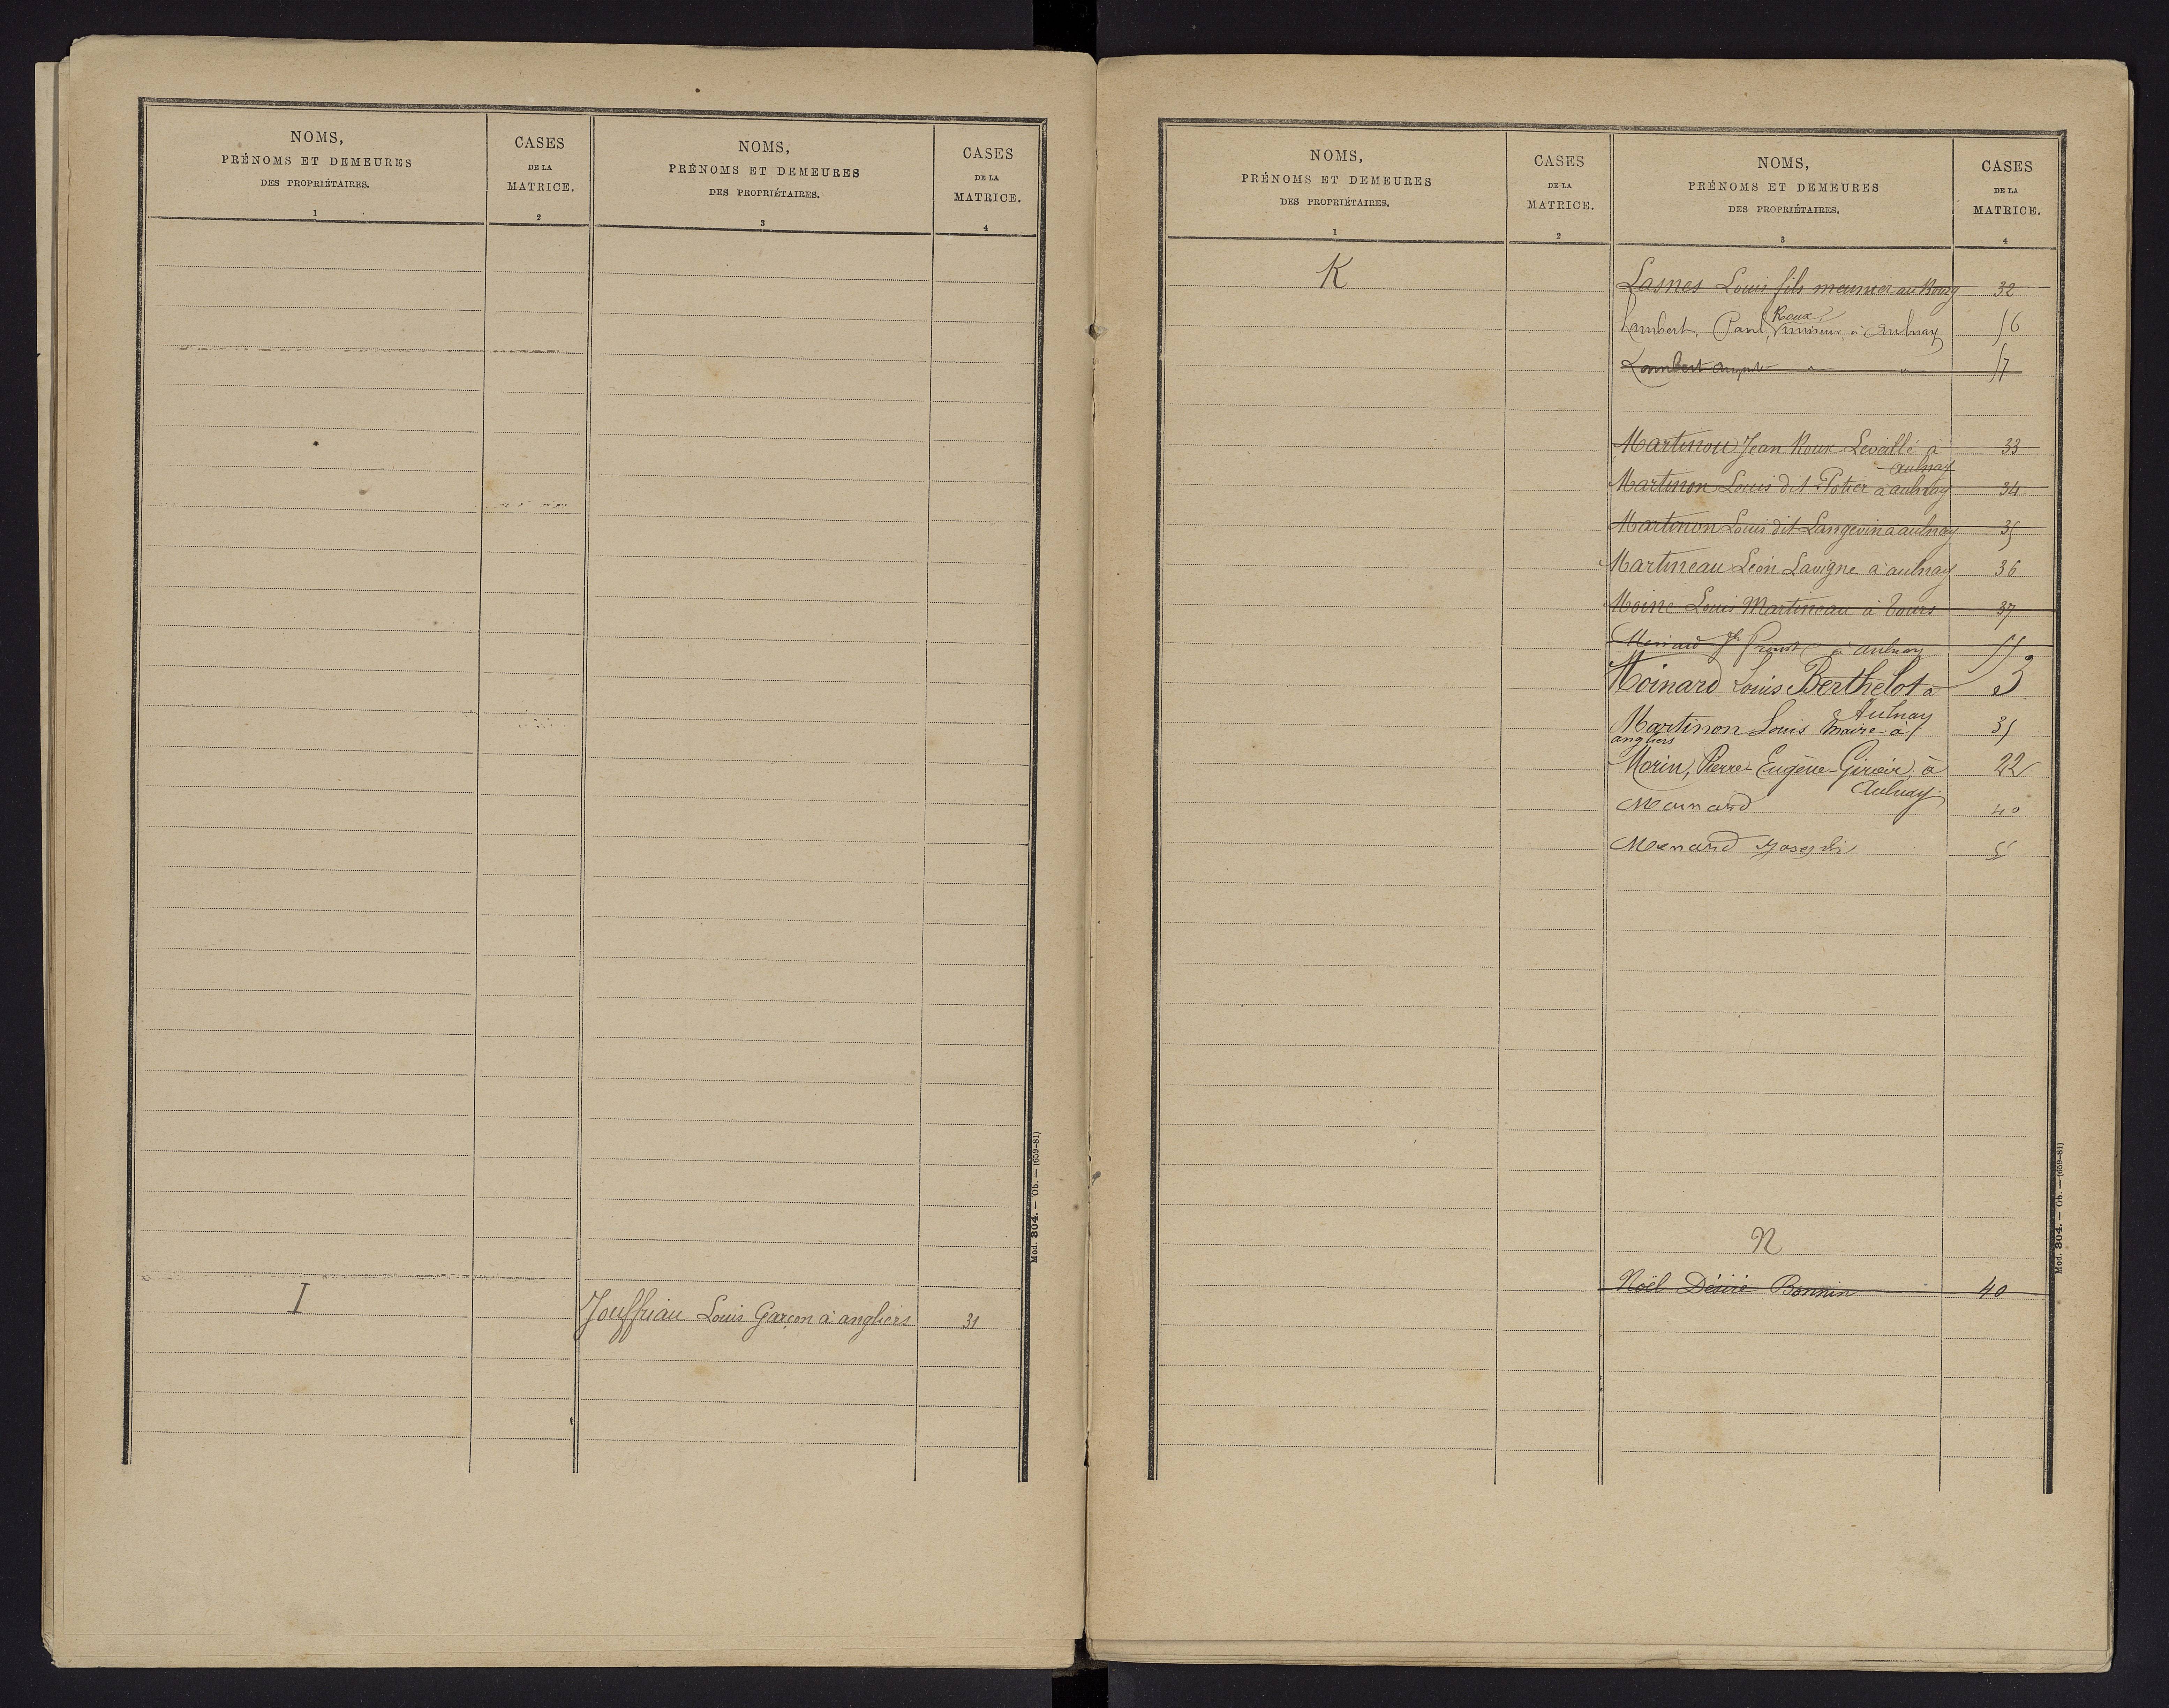 NOMS,
PRÉNOMS ET DEMEURES
DES PROPRIÉTAIRES.
1
CASES
DE LA
MATRICE.
2
NOMS,
PRÉNOMS ET DEMEURES
DES PROPRIÉTAIRES.
3
CASES
DE LA
MATRICE.
4
I
Jouffriau Louis Garçon à angliers 31
Mod. 804. — Ob. — (659-81)
NOMS,
PRÉNOMS ET DEMEURES
DES PROPRIÉTAIRES.
1
CASES
DE LA
MATRICE.
2
NOMS,
PRÉNOMS ET DEMEURES
DES PROPRIÉTAIRES.
3
CASES
DE LA
MATRICE.
4
K
Lasnes Louis fils meunier au Bourg 32
Roux
Lambert, Paul, mineur, à Aulnay 56
Lambert Auguste " " 57
Martinon Jean Roux Leveillé à 33
aulnay
Martinon Louis dit Potier à aulnay 34
Martinon Louis dit Langevin à aulnay 35
Martineau Léon Lavigne à aulnay 36
Moine Louis Martineau à Tours 37
à aulnay 55
Moinard Louis Berthelot à 3
Aulnay
Martinon Louis maire à 35
angliers
Morin, Pierre Eugène-Giroir, à 22
Aulnay.
40
Menard Joseph
N
Noël Désiré Bonnin 40
Mod. 804. — Ob. — (659-81)